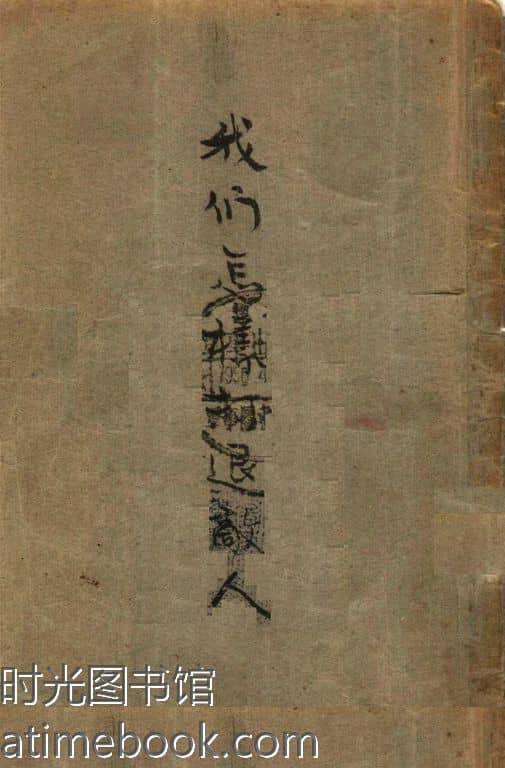 我们怎样打退敌人
时光图书馆
atimebook.com